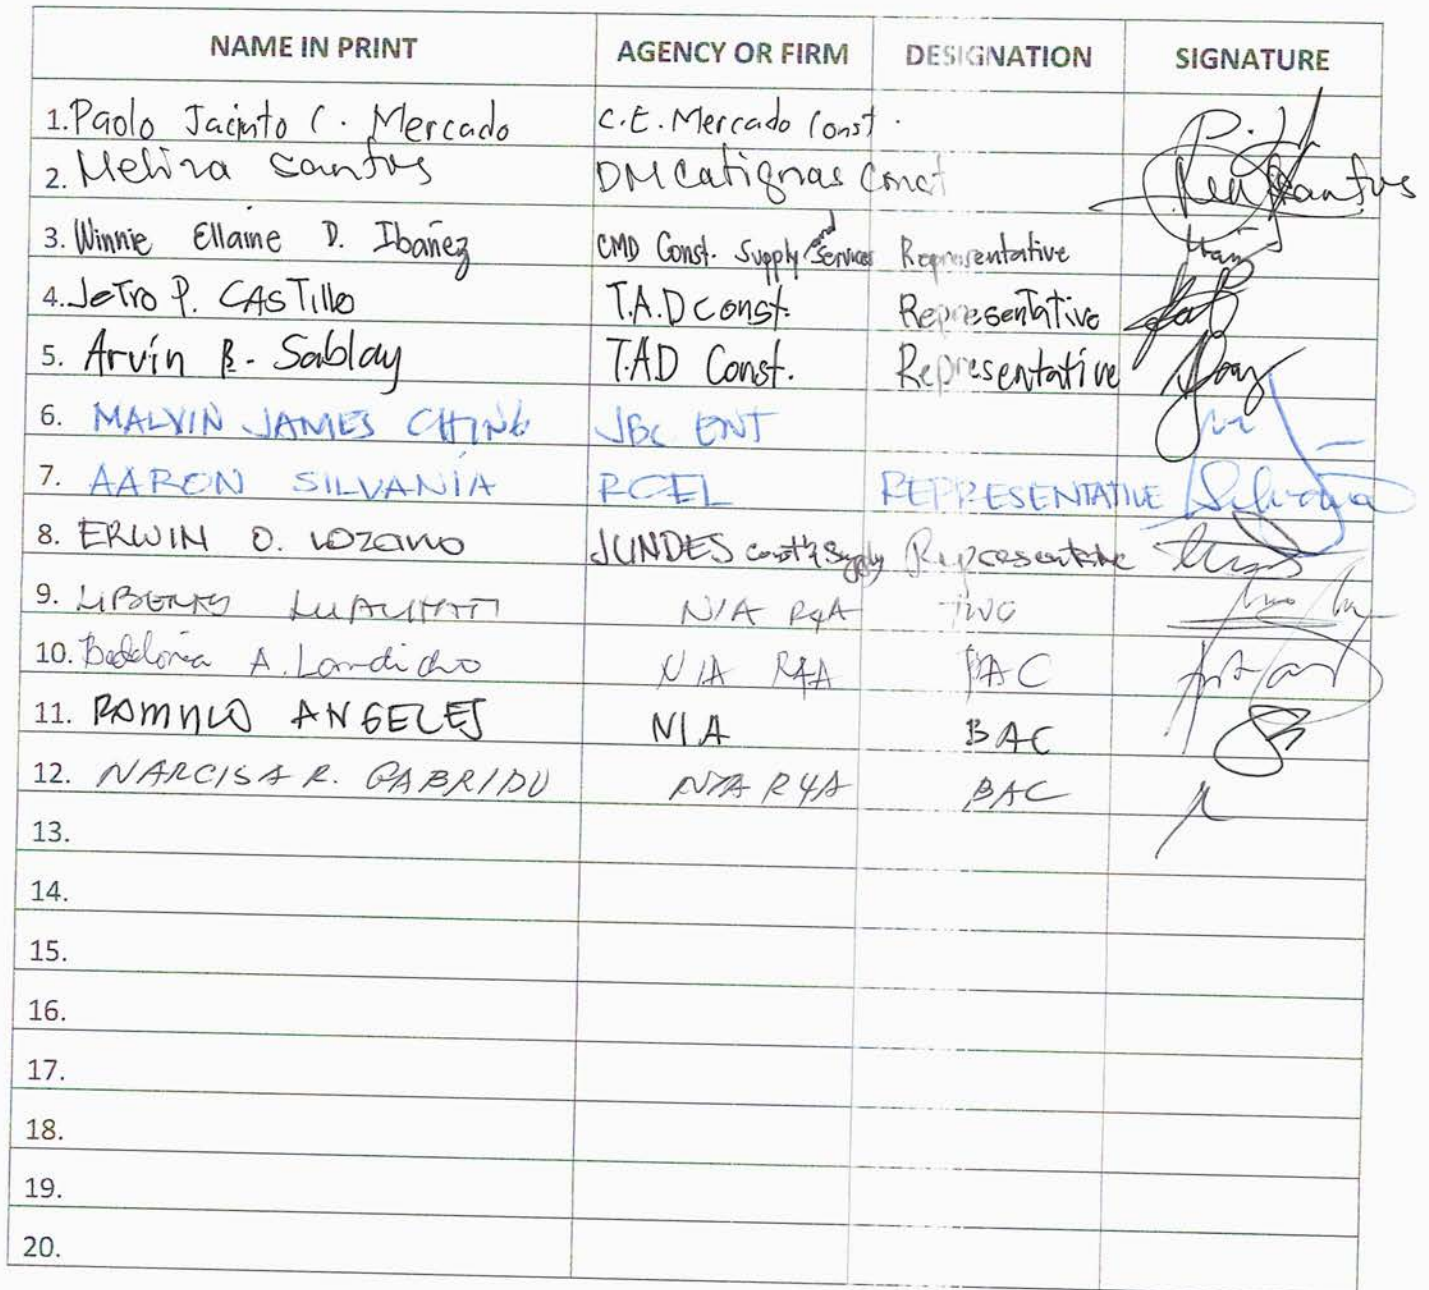 NAME IN PRINT AGENCY OR FIRM DESIGNATION SIGNATURE
1. Paolo Jacinto C. Mercado C.E. Mercado Const.
2. Meliza Santos DMCatignas Const
3. Winnie Ellaine D. Ibañez CMD Const. Supply and Services Representative
4. JeTro P. CASTillo T.A.D const. Representative
5. Arvin B. Sablay T.A.D Const. Representative
6. MALVIN JAMES CHING JBC ENT
7. AARON SILVANIA RCEL REPRESENTATIVE
8. ERWIN O. LOZANO JUNDES const'n Supply Representative
9. NIA R4A TWG
10. A. Landicho NIA R4A BAC
11. ROMULO ANGELES NIA BAC
12. NARCISA R. GABRIDO NIA R4A BAC
13.
14.
15.
16.
17.
18.
19.
20.